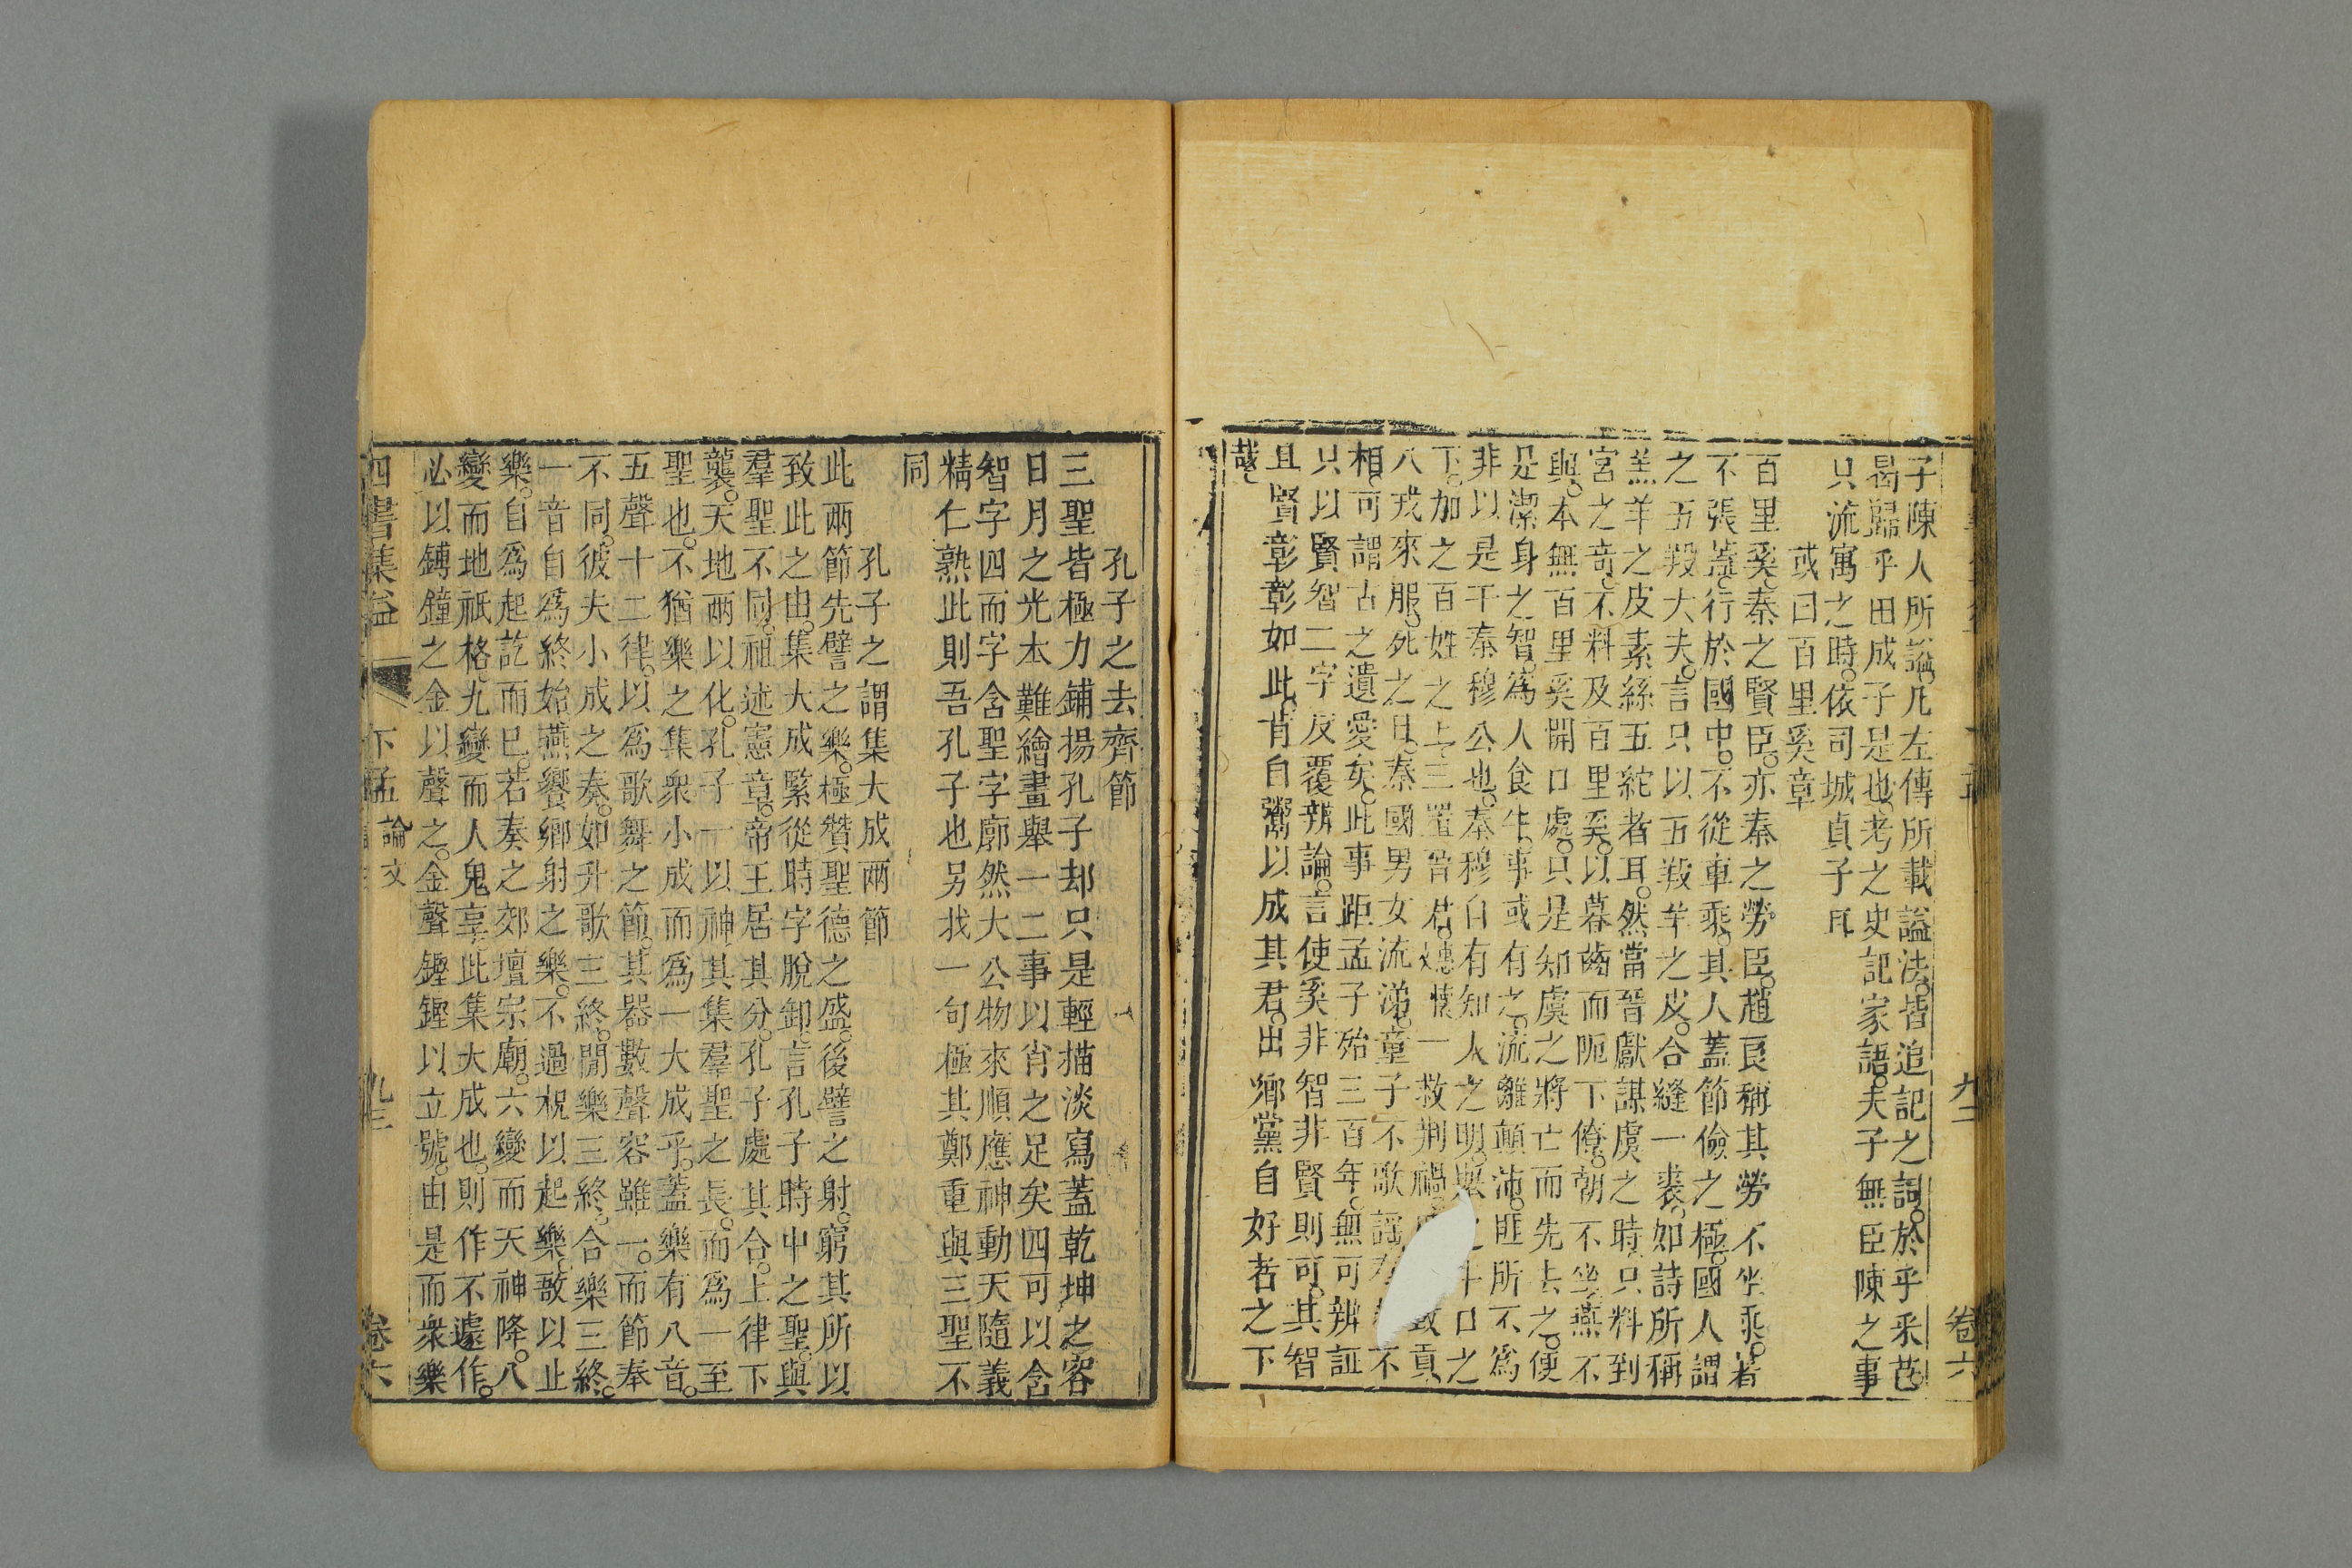 子陳人所諡凡左傳所載諡法皆追記之詞於乎采芑
曷歸乎田成子是也考之史記家語夫子無臣陳之事
只流寓之時依司城貞子耳
或曰百里奚章
百里奚秦之賢臣亦秦之勞臣趙良稱其勞不坐乘暑
不張蓋行於國中不從車乘其人蓋節儉之極國人謂
之五羖大夫言只以五羖羊之皮合縫一裘如詩所稱
羔羊之皮素絲五紽者耳然當晉獻謀虞之時只料到
宮之奇不料及百里奚以暮齒而阨下僚朝不坐燕不
與本無百里奚開口處只是知虞之將亡而先去之便
是潔身之智為人食牛事或有之流離顛沛匪所不為
非以是干秦穆公也秦穆自有知人之明 口之
下加之百姓之上三置晉君 一救荆禍 致貢
八戎來服死之日秦國男女流涕童子不歌謠 不
相可謂古之遺愛矣此事距孟子殆三百年無可辨証
只以賢智二字反覆辨論言使奚非智非賢則可其智
且賢彰彰如此肯自鬻以成其君出鄉黨自好者之下
哉
九二
卷六
孔子之去齊節
三聖皆極力鋪揚孔子却只是輕描淡寫蓋乾坤之容
日月之光本難繪畫舉一二事以肖之足矣四可以含
智字四而字含聖字廓然大公物來順應神動天隨義
精仁熟此則吾孔子也另找一句極其鄭重與三聖不
同
孔子之謂集大成兩節
此兩節先譬之樂極贊聖德之盛後譬之射窮其所以
致此之由集大成緊從時字脫卸言孔子時中之聖與
羣聖不同祖述憲章帝王居其分孔子處其合上律下
襲天地兩以化孔子一以神其集羣聖之長而為一至
聖也不猶樂之集衆小成而為一大成乎蓋樂有八音
五聲十二律以為歌舞之節其器數聲容雖一而節奉
不同彼夫小成之奏如升歌三終間樂三終合樂三終
一音自為終始燕饗鄉射之樂不過柷以起樂敔以止
樂自為起訖而已若奏之郊壇宗廟六變而天神降八
變而地祇格九變而人鬼享此集大成也則作不遽作
必以鎛鐘之金以聲之金聲鏗鏗以立號由是而衆樂
四書集益
下孟 論文
九三
卷六